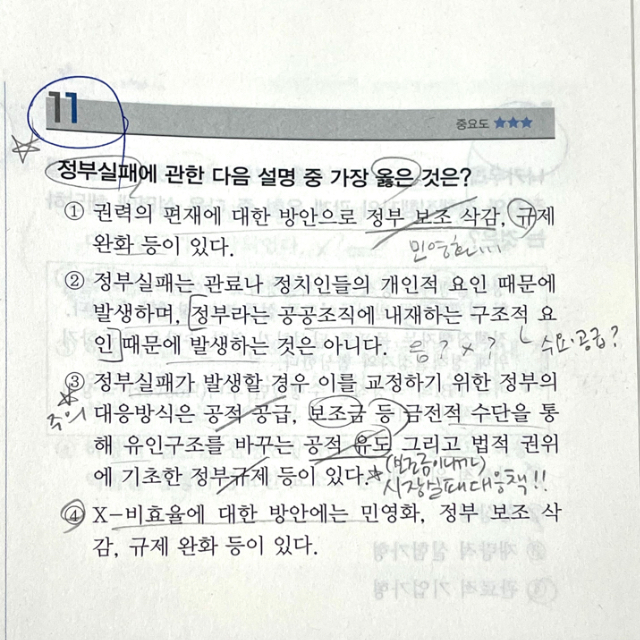 11
중요도 ★★★
정부실패에 관한 다음 설명 중 가장 옳은 것은?
① 권력의 편재에 대한 방안으로 정부 보조 삭감, 규제
완화 등이 있다.
민영화...
② 정부실패는 관료나 정치인들의 개인적 요인 때문에
발생하며, 정부라는 공공조직에 내재하는 구조적 요
인 때문에 발생하는 것은 아니다.
수요·공급?
③ 정부실패가 발생할 경우 이를 교정하기 위한 정부의
주의
대응방식은 공적 공급, 보조금 등 금전적 수단을 통
해 유인구조를 바꾸는 공적 유도 그리고 법적 권위
에 기초한 정부규제 등이 있다.
시장실패 대응책!!
④ X-비효율에 대한 방안에는 민영화, 정부 보조 삭
감, 규제 완화 등이 있다.